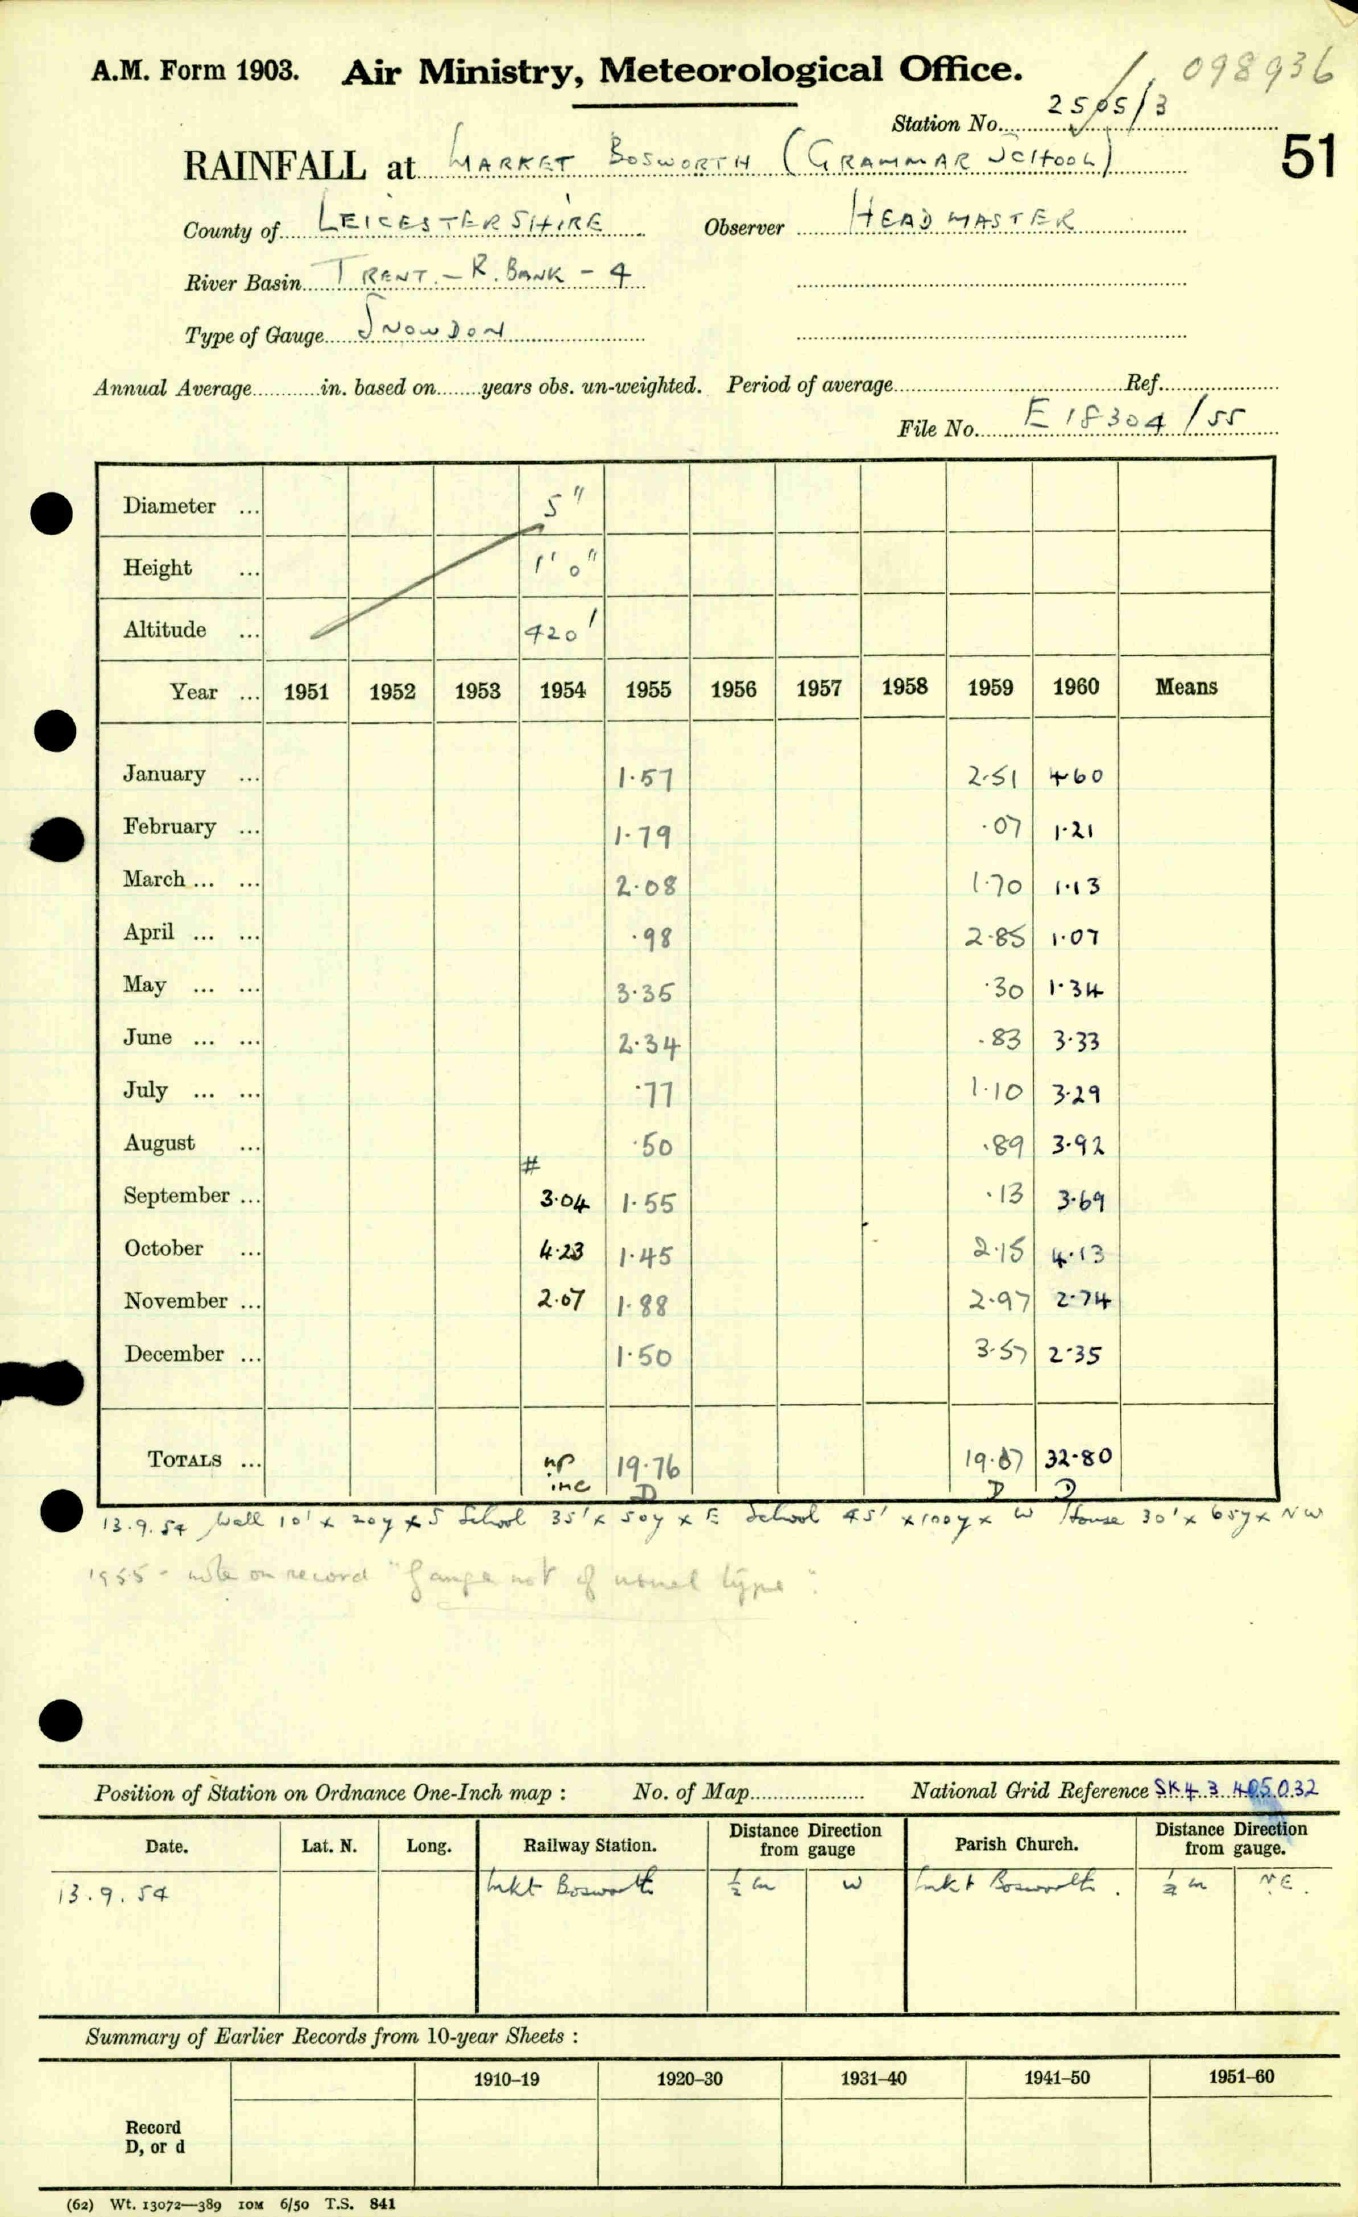 A.M. Form 1903. Air Ministry, Meteorological Office. 098936
Station No. 2505/3
51
RAINFALL at MARKET BOSWORTH (GRAMMAR SCHOOL)
County of LEICESTERSHIRE Observer HEADMASTER
River Basin TRENT. – R. BANK – 4
Type of Gauge SNOWDON
Annual Average............in. based on........years obs. un-weighted. Period of average.................... Ref....................
File No. E 18304/55
Diameter ... 5"
Height ... 1' 0"
Altitude ... 420'
Year ... 1951 1952 1953 1954 1955 1956 1957 1958 1959 1960 Means
January ... 1·57 2·51 4·60
February ... 1·79 ·07 1·21
March ... ... 2·08 1·70 1·13
April ... ... ·98 2·85 1·07
May ... ... 3·35 ·30 1·34
June ... ... 2·34 ·83 3·33
July ... ... ·77 1·10 3·29
August ... ·50 ·89 3·92
#
September ... 3·04 1·55 ·13 3·69
October ... 4·23 1·45 2·15 4·13
November ... 2·07 1·88 2·97 2·74
December ... 1·50 3·57 2·35
TOTALS ... np 19·76 19·07 32·80
inc D D D
13.9.54 Wall 10' x 20y x S School 35' x 50y x E School 45' x 100y x W House 30' x 65y x NW
1955 - note on record "Gauge not of usual type".
Position of Station on Ordnance One-Inch map : No. of Map.................... National Grid Reference SK43 405032
Date. Lat. N. Long. Railway Station. Distance from gauge Direction Parish Church. Distance from gauge. Direction
13.9.54 Mkt Bosworth ½ m W Mkt Bosworth. ¼ m NE.
Summary of Earlier Records from 10-year Sheets :
1910–19 1920–30 1931–40 1941–50 1951–60
Record
D, or d
(62) Wt. 13072—389 10M 6/50 T.S. 841